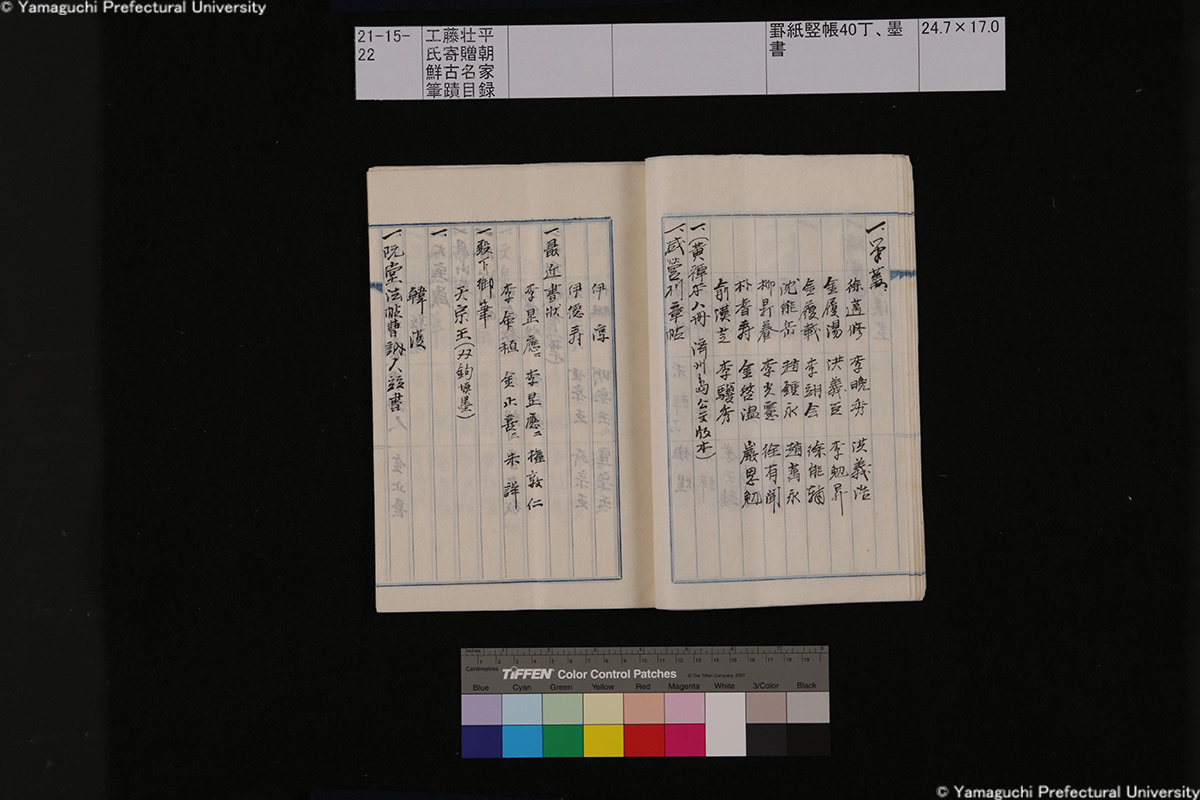 © Yamaguchi Prefectural University
21-15-22
工藤壮平
氏寄贈朝
鮮古名家
筆蹟目録
罫紙竪帳40丁、墨書
24.7×17.0
一、筆叢
徐邁修 李晩秀 洪義浩
金履陽 洪義臣 李勉昇
金履載 李翊会 徐能輔
沈能岳 趙鍾永 趙萬永
柳昇養 李光憲 徐有聞
朴耆寿 金啓温 嚴思勉
俞漢芝 李驥秀
一、(黄禪 八冊 済州島公文版本)
一、咸営列章帖
伊 淳
伊德寿
一、最近書状
李昰應 李昰應 権敦仁
李 植 金正喜 朱詳
一、殿下御筆
天宗王(双鉤填墨)
一、
韓濩
一、阮堂法帖曹訥人筮書
Inches
Centimetres
TIFFEN Color Control Patches
© The Tiffen Company, 2007
Blue Cyan Green Yellow Red Magenta White 3/Color Black
© Yamaguchi Prefectural University